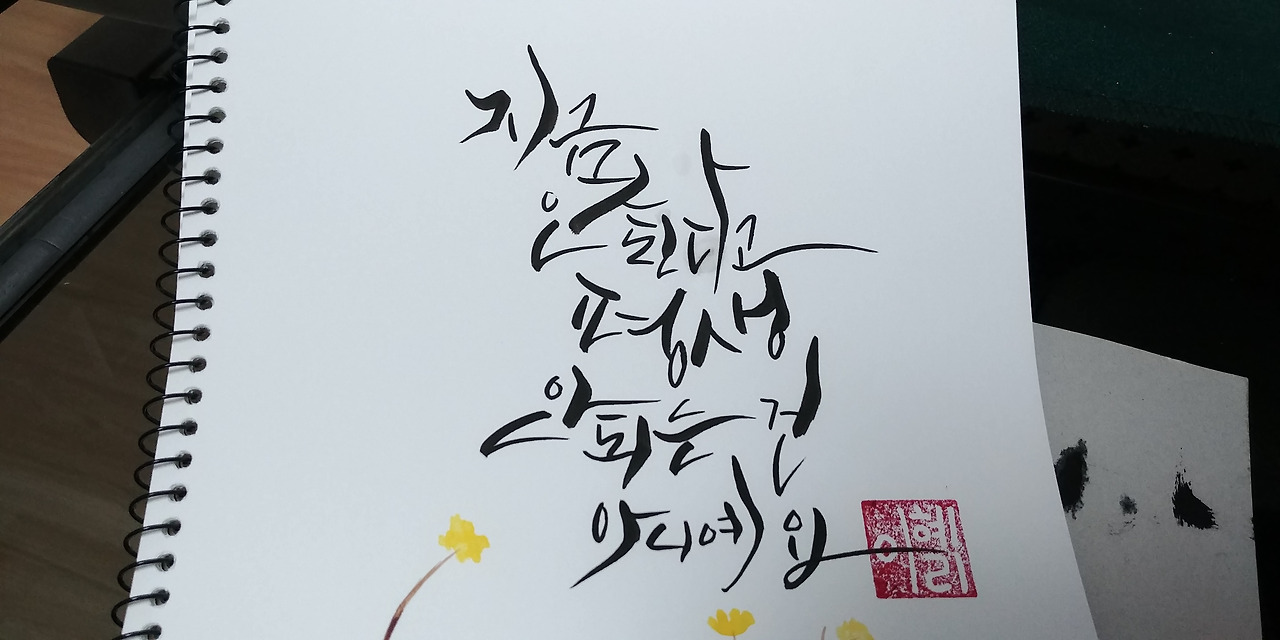 지금
안된다고
평생
안되는건
아니예요
이혜리